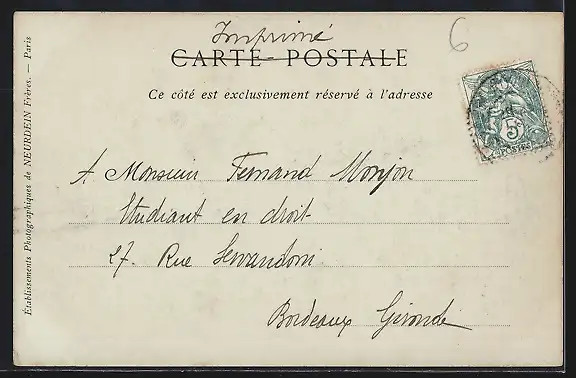 Imprimé
6
CARTE POSTALE
Ce côté est exclusivement réservé à l'adresse
5c
POSTES
A Monsieur Fernand Monjon
Etudiant en droit
27. Rue Servandoni
Bordeaux Gironde
Établissements Photographiques de NEURDEIN Frères. — Paris